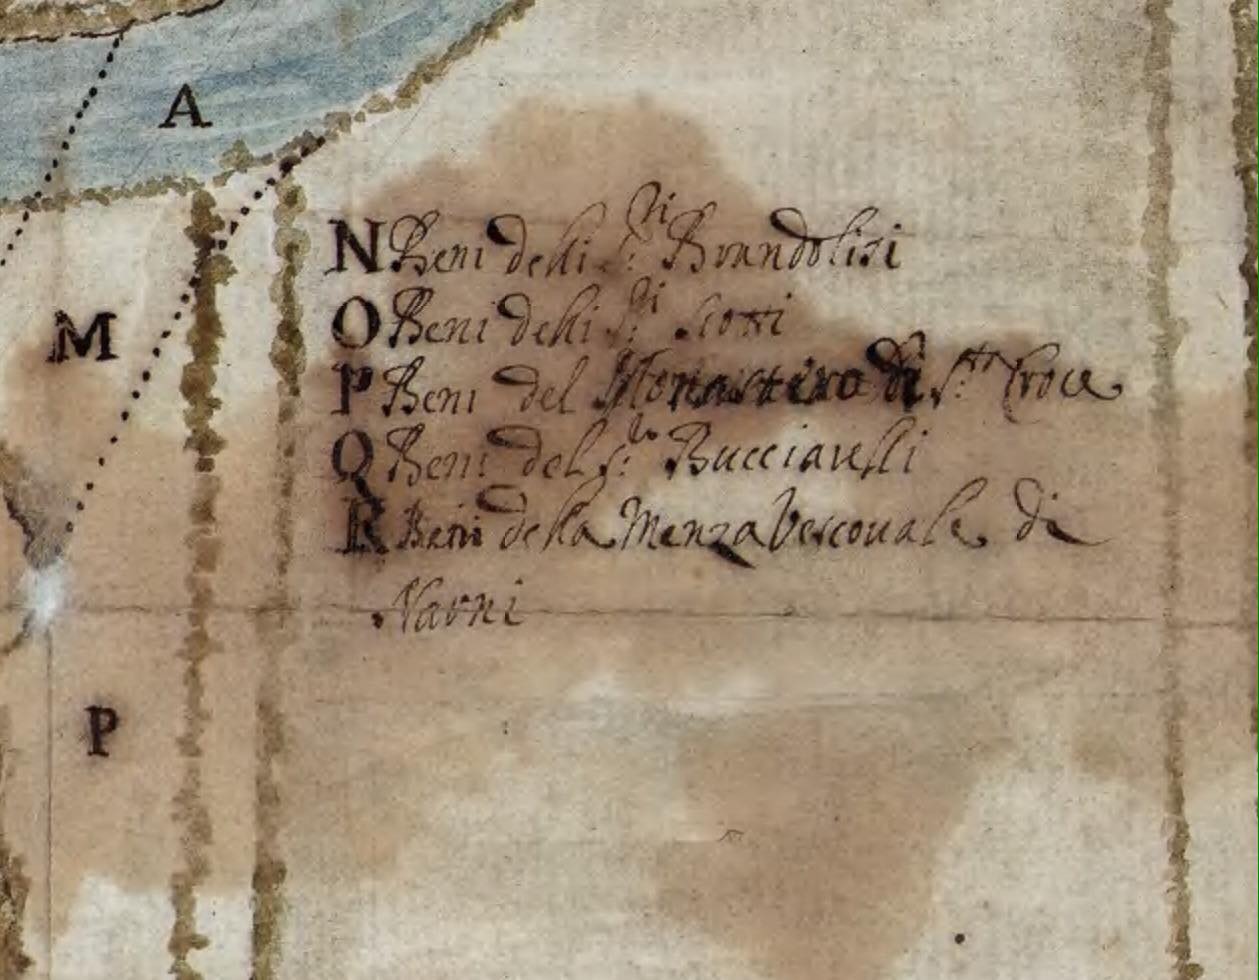 A
N Beni delli S.ri Brandolisi
O Beni delli S.ri Scotti
M
P Beni del Monastero di S.ta Croce
Q Beni del S.re Bucciarelli
R Beni della Menza Vescovale di
Narni
P